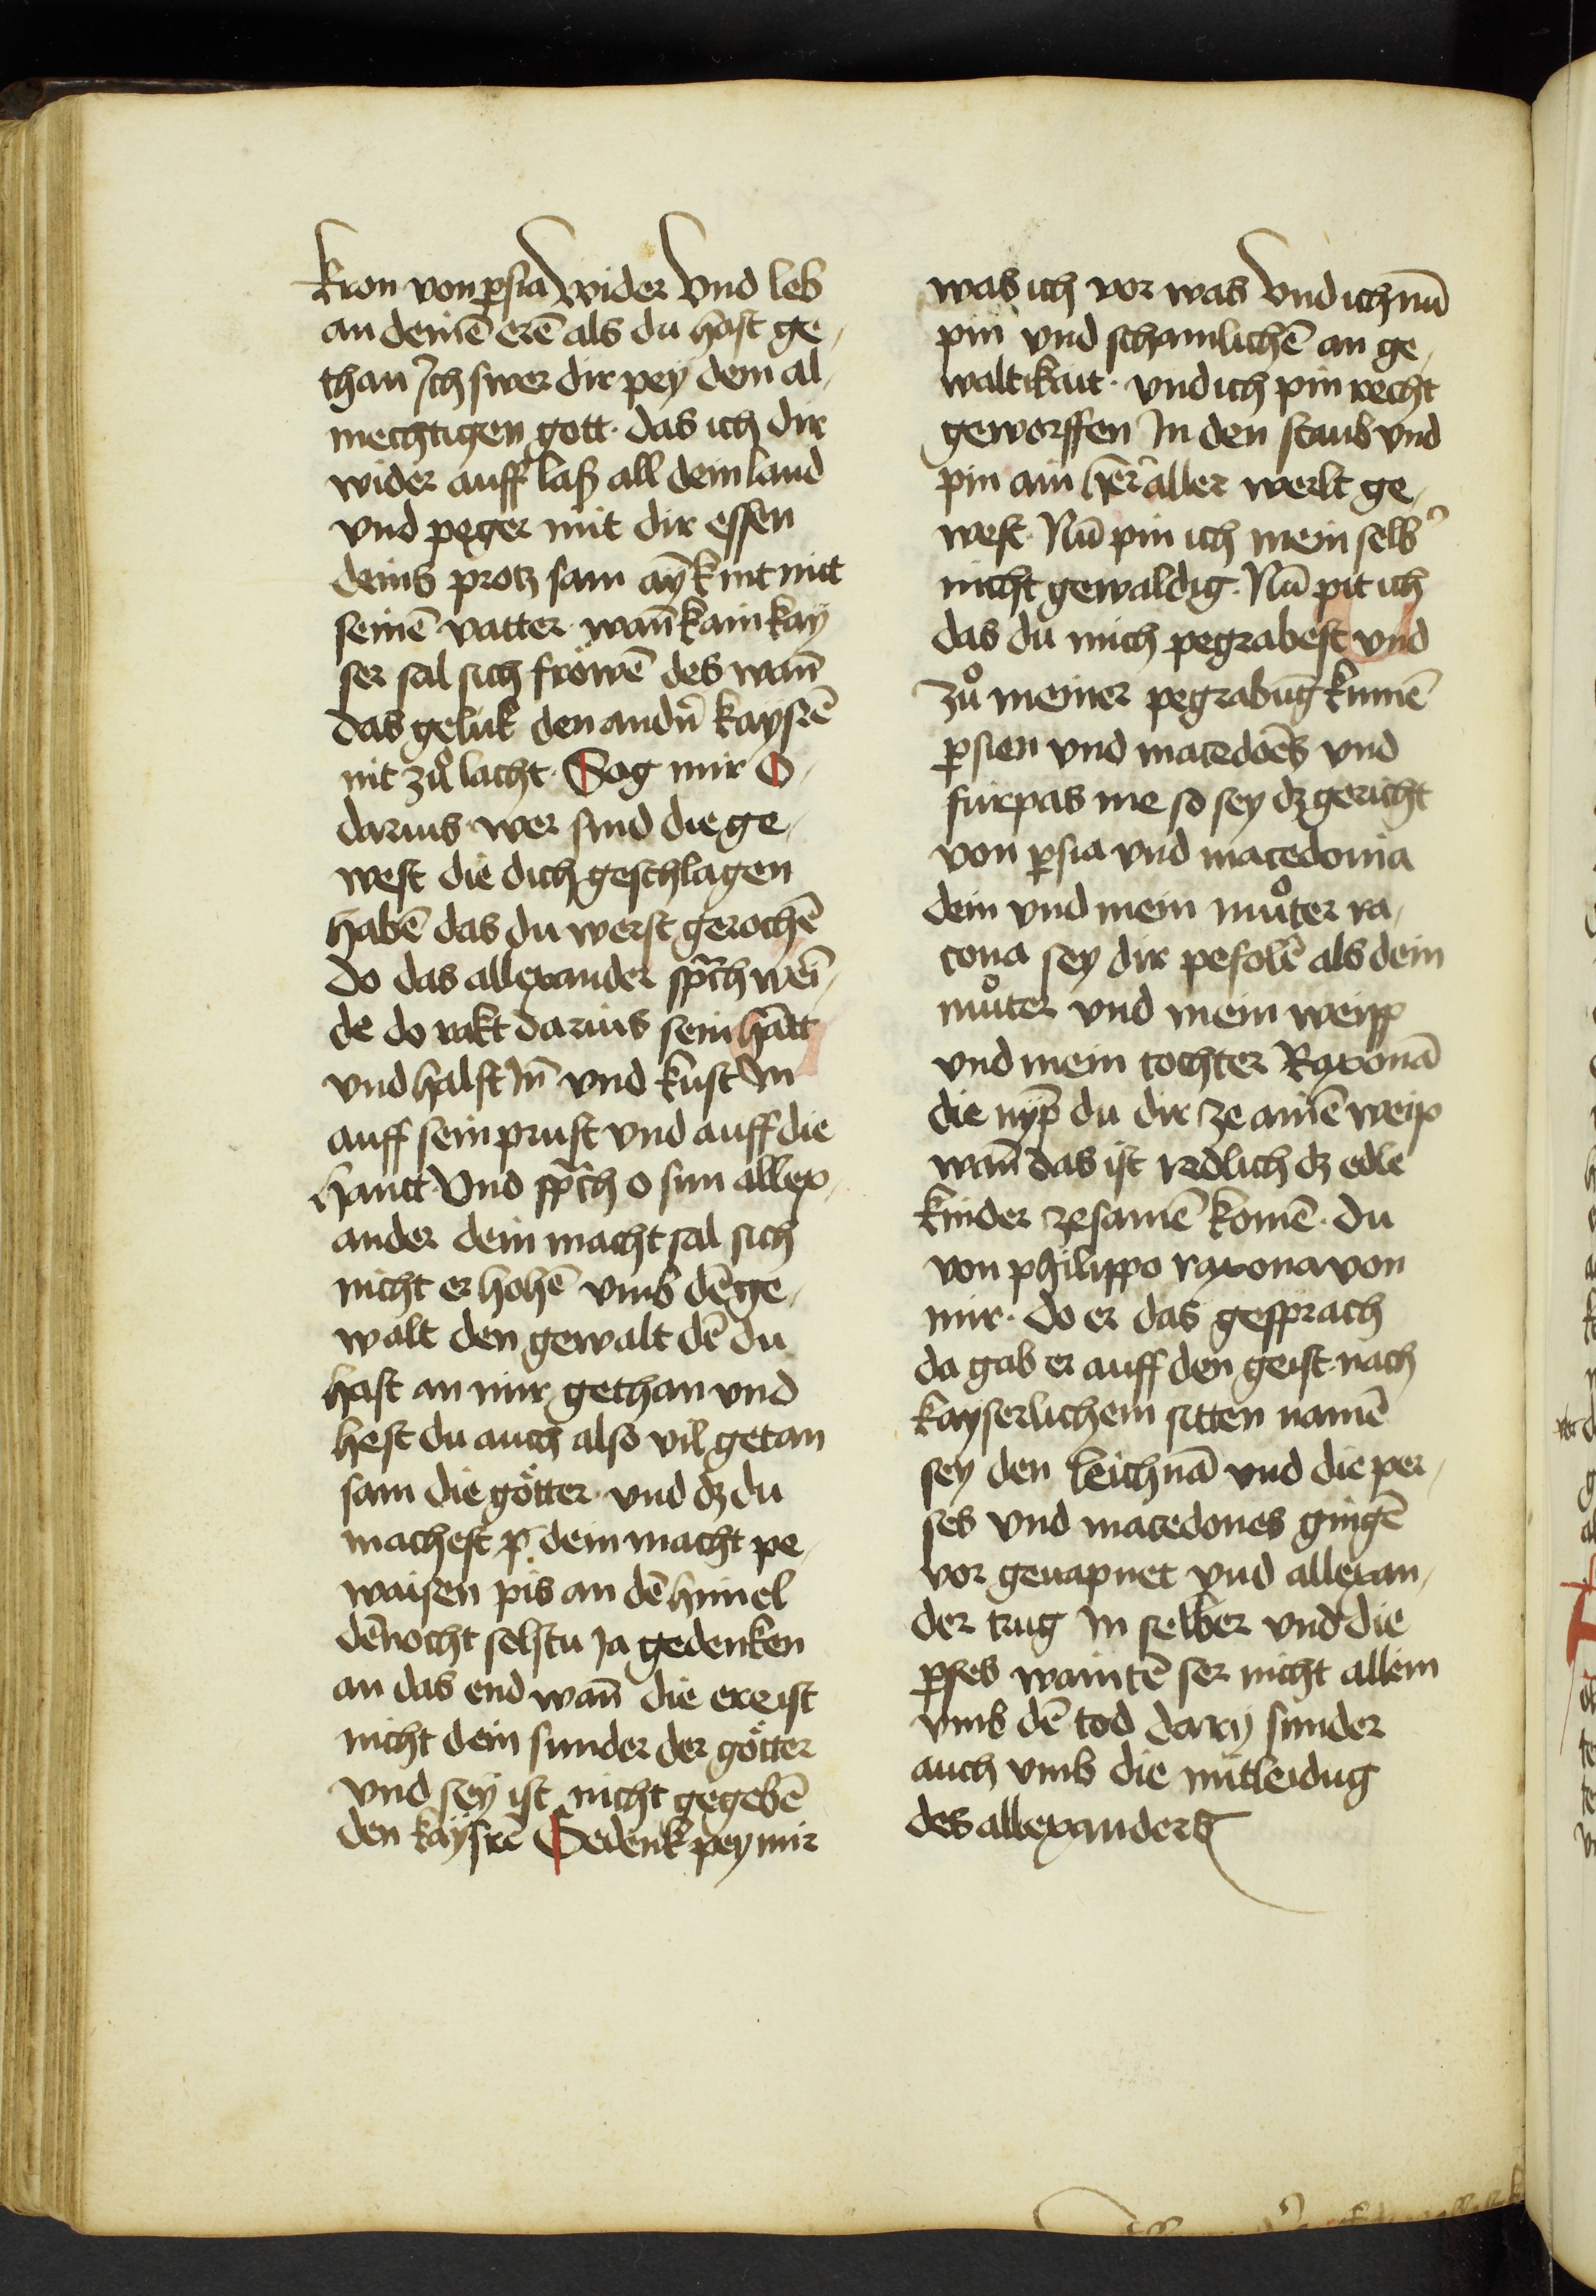 kron von ꝑsia wider Vnd leb
an deinē erē als du hast ge-
than Ich swer dir pey dem al-
mechtigen gott· das ich dir
wider auff laß all dein land
vnd peger mit dir essen
deins protz sam aȳ kint mit
seinē vatter· wañ kain kay
ser sal sich fröwē des wañ
das geluk den andn̄ kaysrē
nit zů lacht· Sag mir O-
darius· wer sind die ge-
west die dich geschlagen
habē das du werst gerochē
do das allexander sp̄ch wei-
de do rakt darius sein hātt
vnd halst Jn̄ vnd kust Jn
auff sein prust vnd auff die
hantt· Vnd sp̄ch o sun allex-
ander dein macht sal sich
nicht er hohē vmb dē ge-
walt den gewalt dē du
hast an mir gethan vnd
hest du auch also vil getan
sam die götter· vnd dz du
machest p̄ dein macht pe-
waisen pis an dē himel
dēnocht selstu ja gedenken
an das end wañ die ere ist
nicht dein sunder der götter
vnd sey ist nicht gegebē
den kaysrē Gedenk pey mir
was ich vor was Vnd ich nū
pin vnd schamlichē an ge-
waltikait· vnd ich pin recht
geworffen Jn den staub vnd
pin ain h̄er aller werlt ge-
west· Nū pin ich mein selb͛
nicht gewaldig· Nū pit ich
das du mich pegrabest vnd
zů meiner pegrabūg kumē
ꝑsien vnd macedoēs vnd
furpas me so sey dz gericht
von ꝑsia vnd macedonia
dein vnd mein můter ra-
cona sey dir pefolē als dein
můter vnd mein weipp
vnd mein tochter Raxonā
die nyp̄ du dir ze ainē weip
wañ das ist redlich dz edle
kinder zesamē komē· du
von philippo raxona von
mir· do er das gesprach
da gab er auff den geist· nach
kayserlichem sitten namē
sey den leichnā vnd die per-
ses vnd macedones gingē
vor geuapnet vnd allexan-
der trug Jn selber vnd die
ꝑses waintē ser nicht allein
vmb dē tod darij sunder
auch vmb die mitleidug
des allexanders